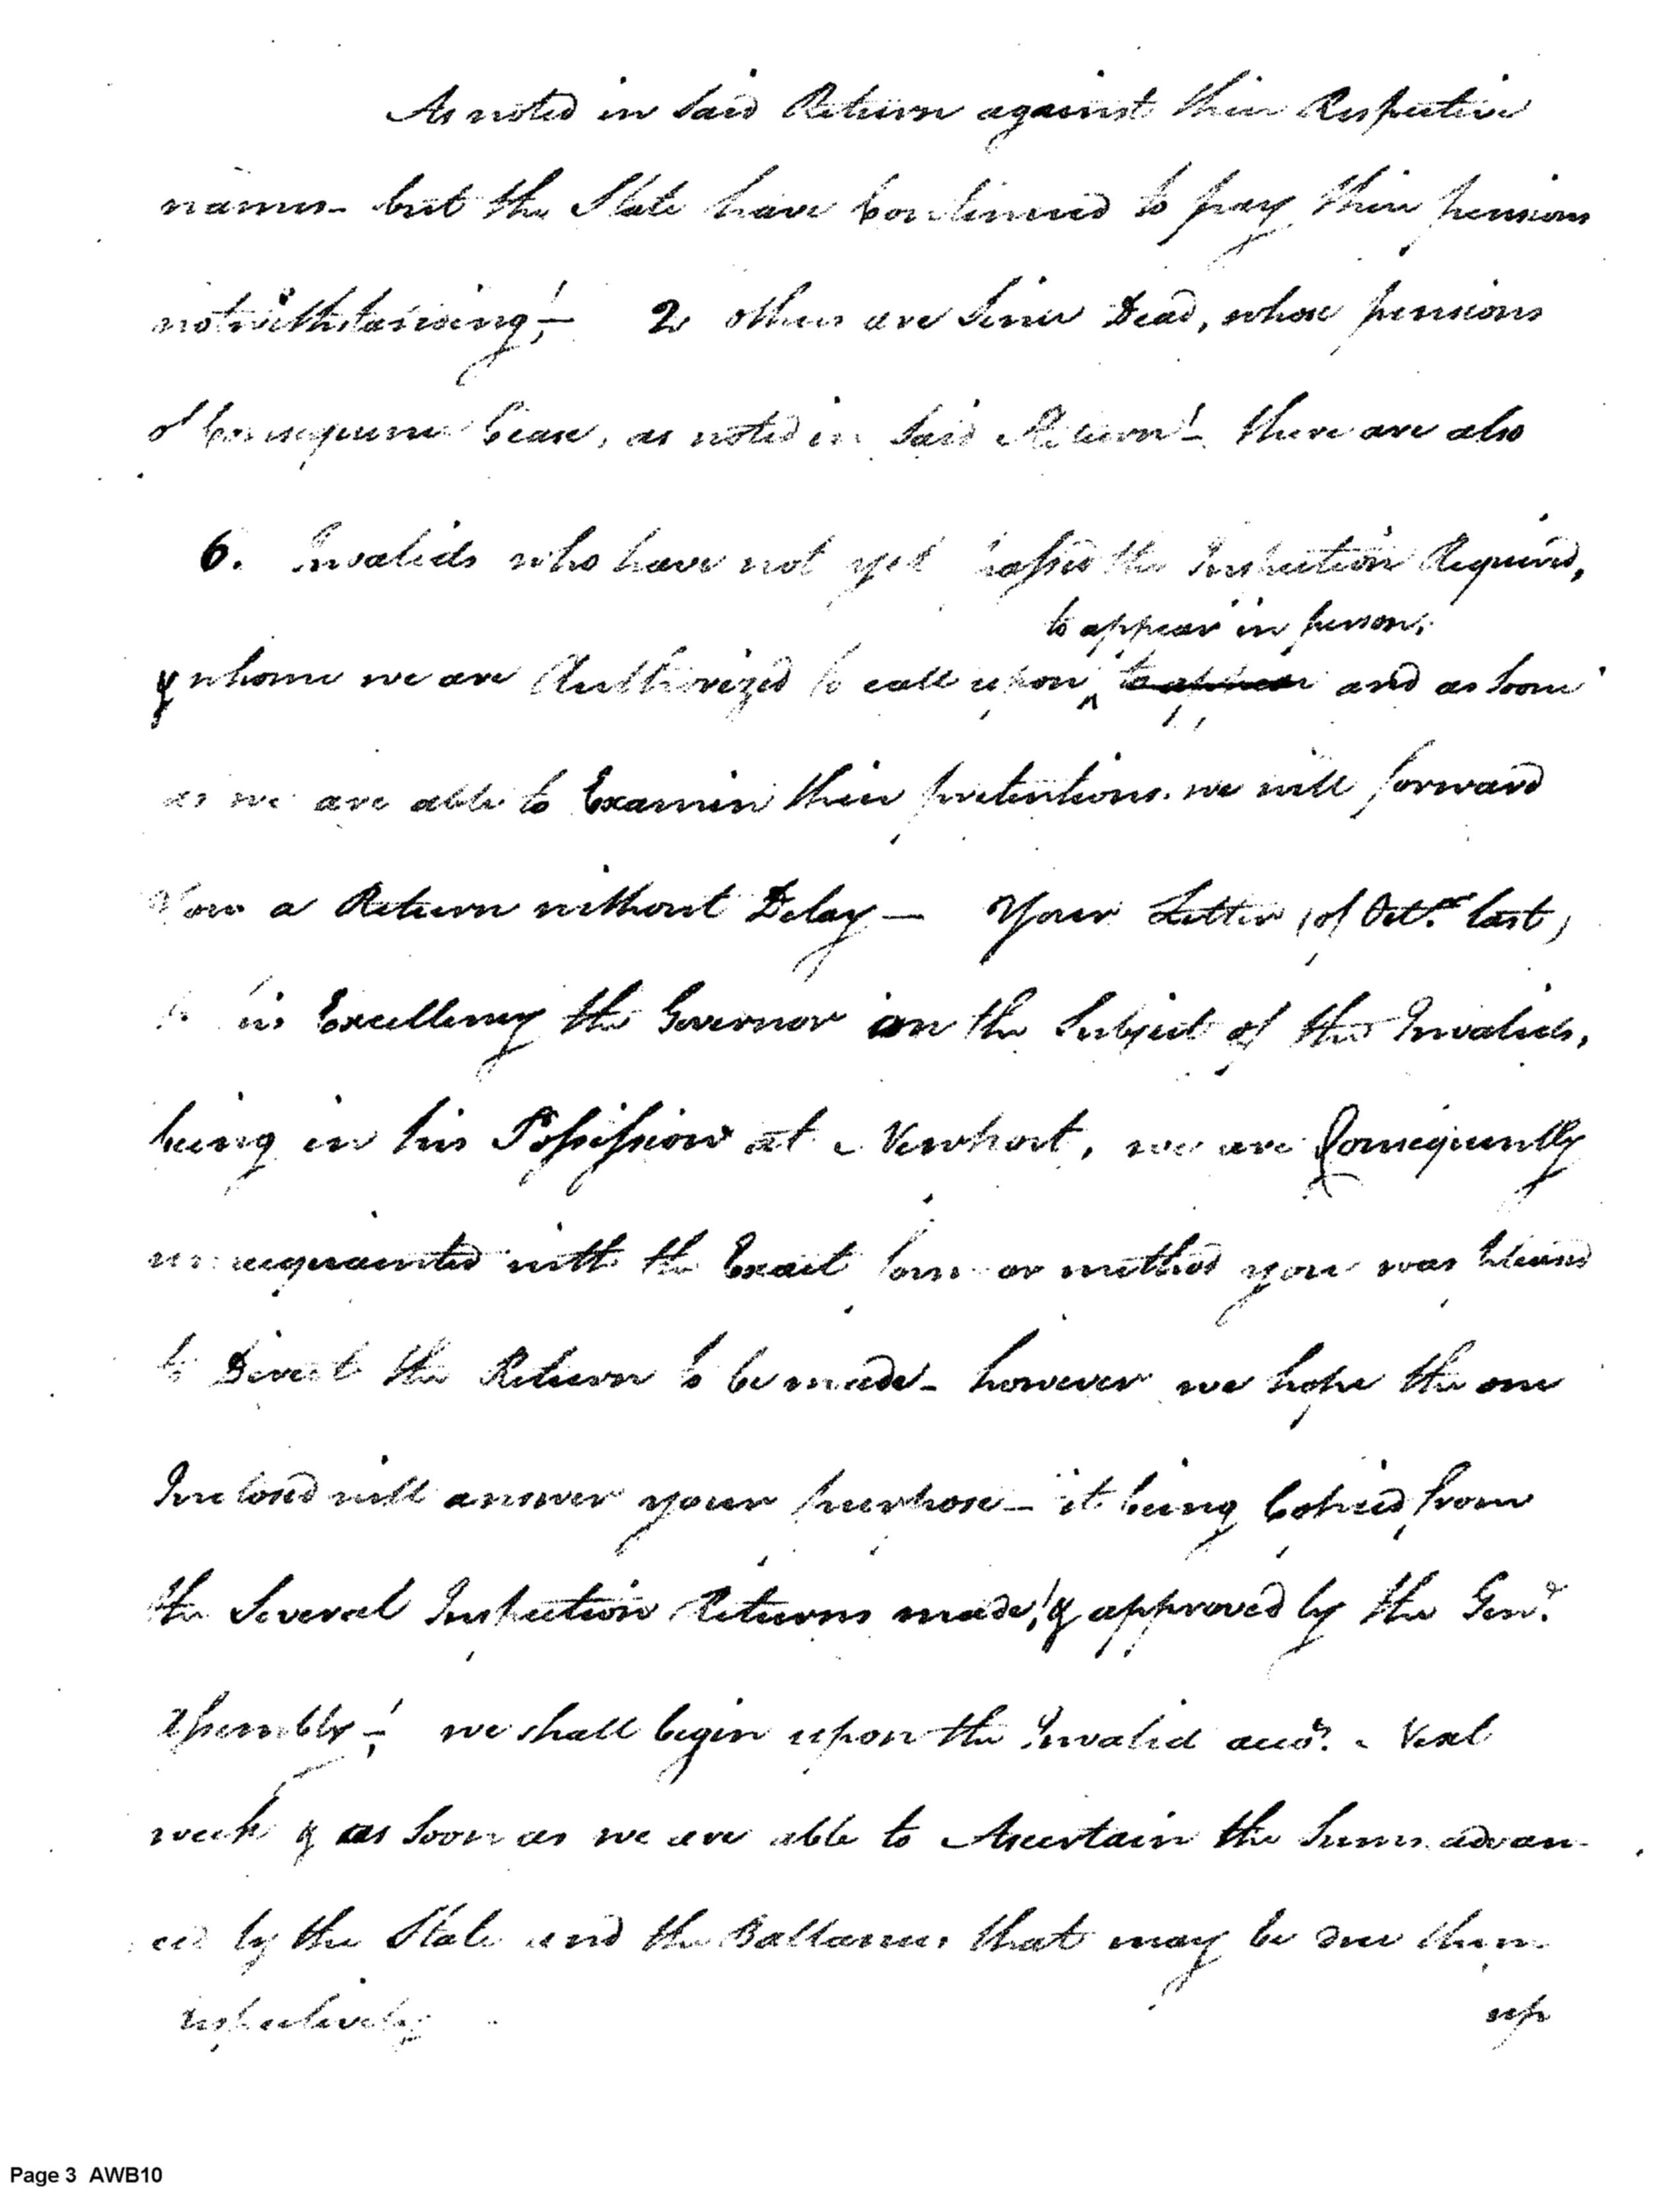 As noted in Said Return against their Respective
names - but the State have Continued to pay their pensions
notwithstanding! - 2 others are Since Dead, whose pensions
of Consequence Cease, as noted in Said Return! - there are also
6. Invalids who have not yet passed the Inspection Required,
to appear in person,
& whome we are Authorized to call upon ^ to appear and as Soon
as we are able to Examin their pretentions. we will forward
You a Return without Delay — Your Letter (of Octr. last)
his Excellency the Governor on the Subject of the Invalids,
being in his Possession at Newport, we are Consequently
unacquainted with the Exact form or method you was pleased
to Direct the Return to be made - however we hope the one
Inclosed will answer your purpose - it being Copied from
the Several Inspection Returns made! & approved by the Genl.
Assembly -! we shall begin upon the Invalid accots. Next
week & as Soon as we are able to Ascertain the Sums advan-
ced by the State and the Ballances that may be due them
respectively
up
Page 3 AWB10